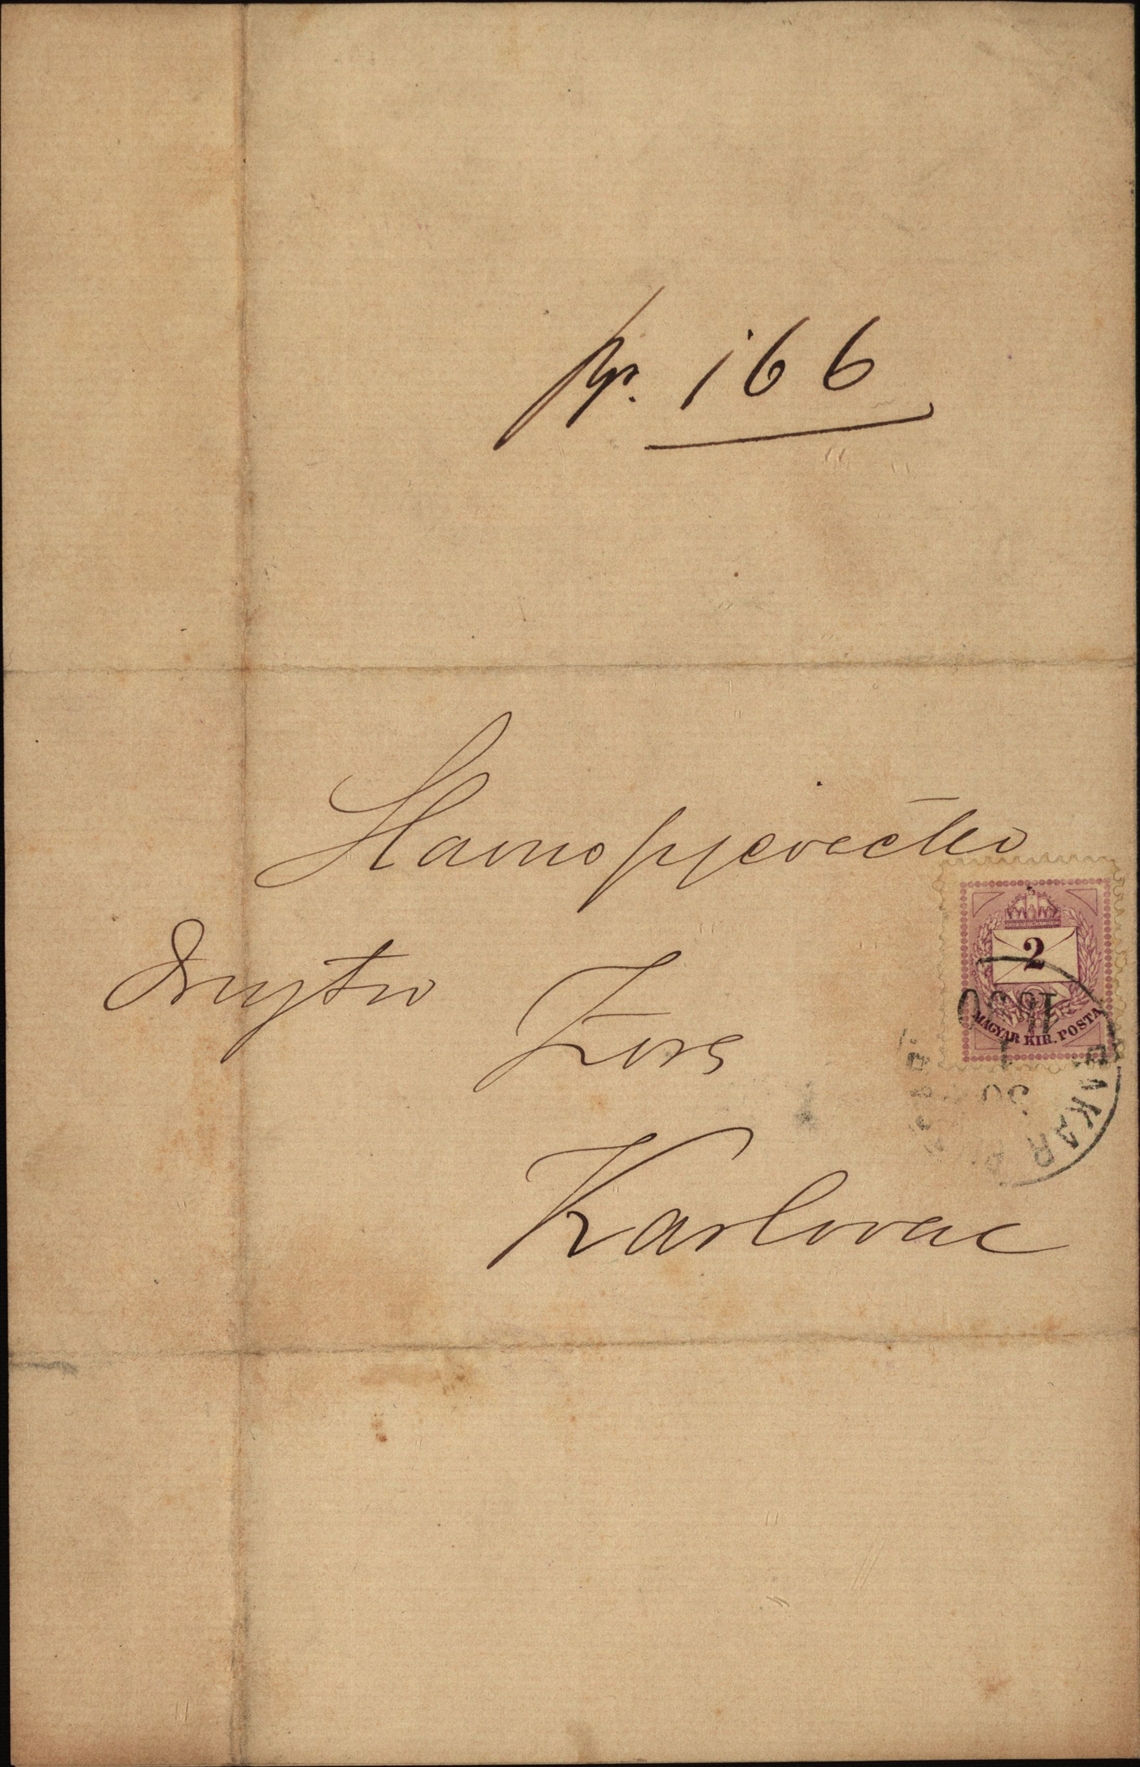 166
Slavno pjevačko
družtvo Zora
Karlovac
2
MAGYAR KIR. POSTA
BAKAR